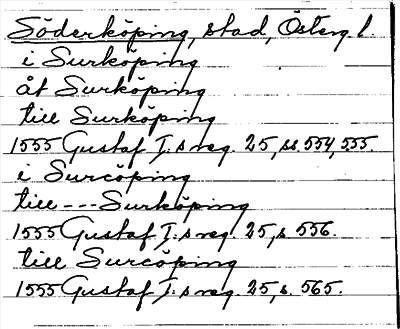 Söderköping, stad, Österg l.
i Surköping
åt Surköping
till Surköping
1555 Gustaf I:s reg. 25, ss. 554, 555.
i Surcöping
till --- Surköping
1555 Gustaf I:s reg. 25, s. 556.
till Surcöping
1555 Gustaf I:s reg. 25, s. 565.